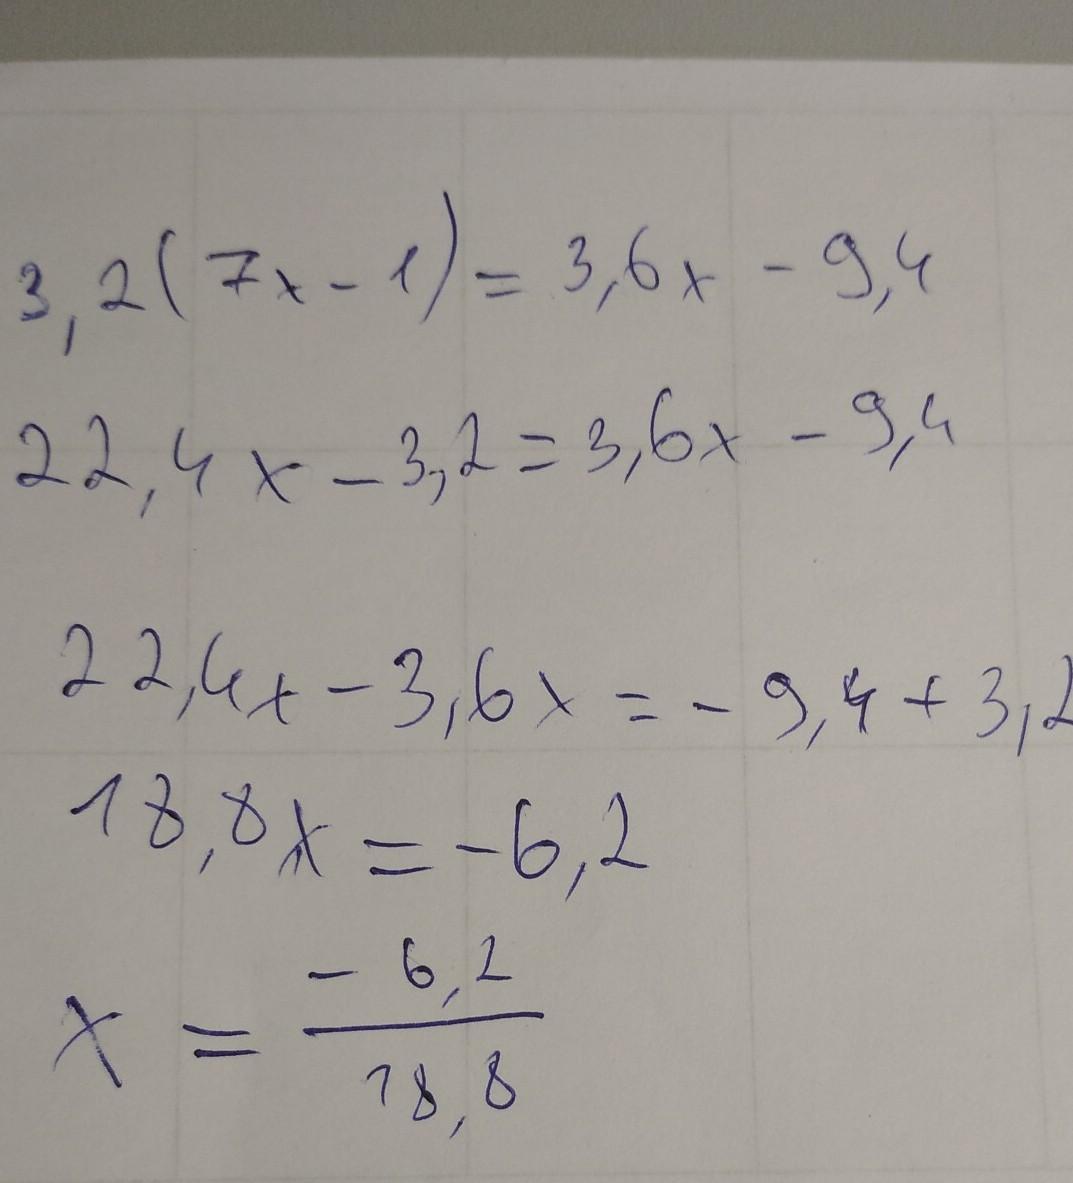 3,2(7x-1)=3,6x-9,4
22,4x-3,2=3,6x-9,4
22,4x-3,6x=-9,4+3,2
18,8x=-6,2
x=\frac{-6,2}{18,8}